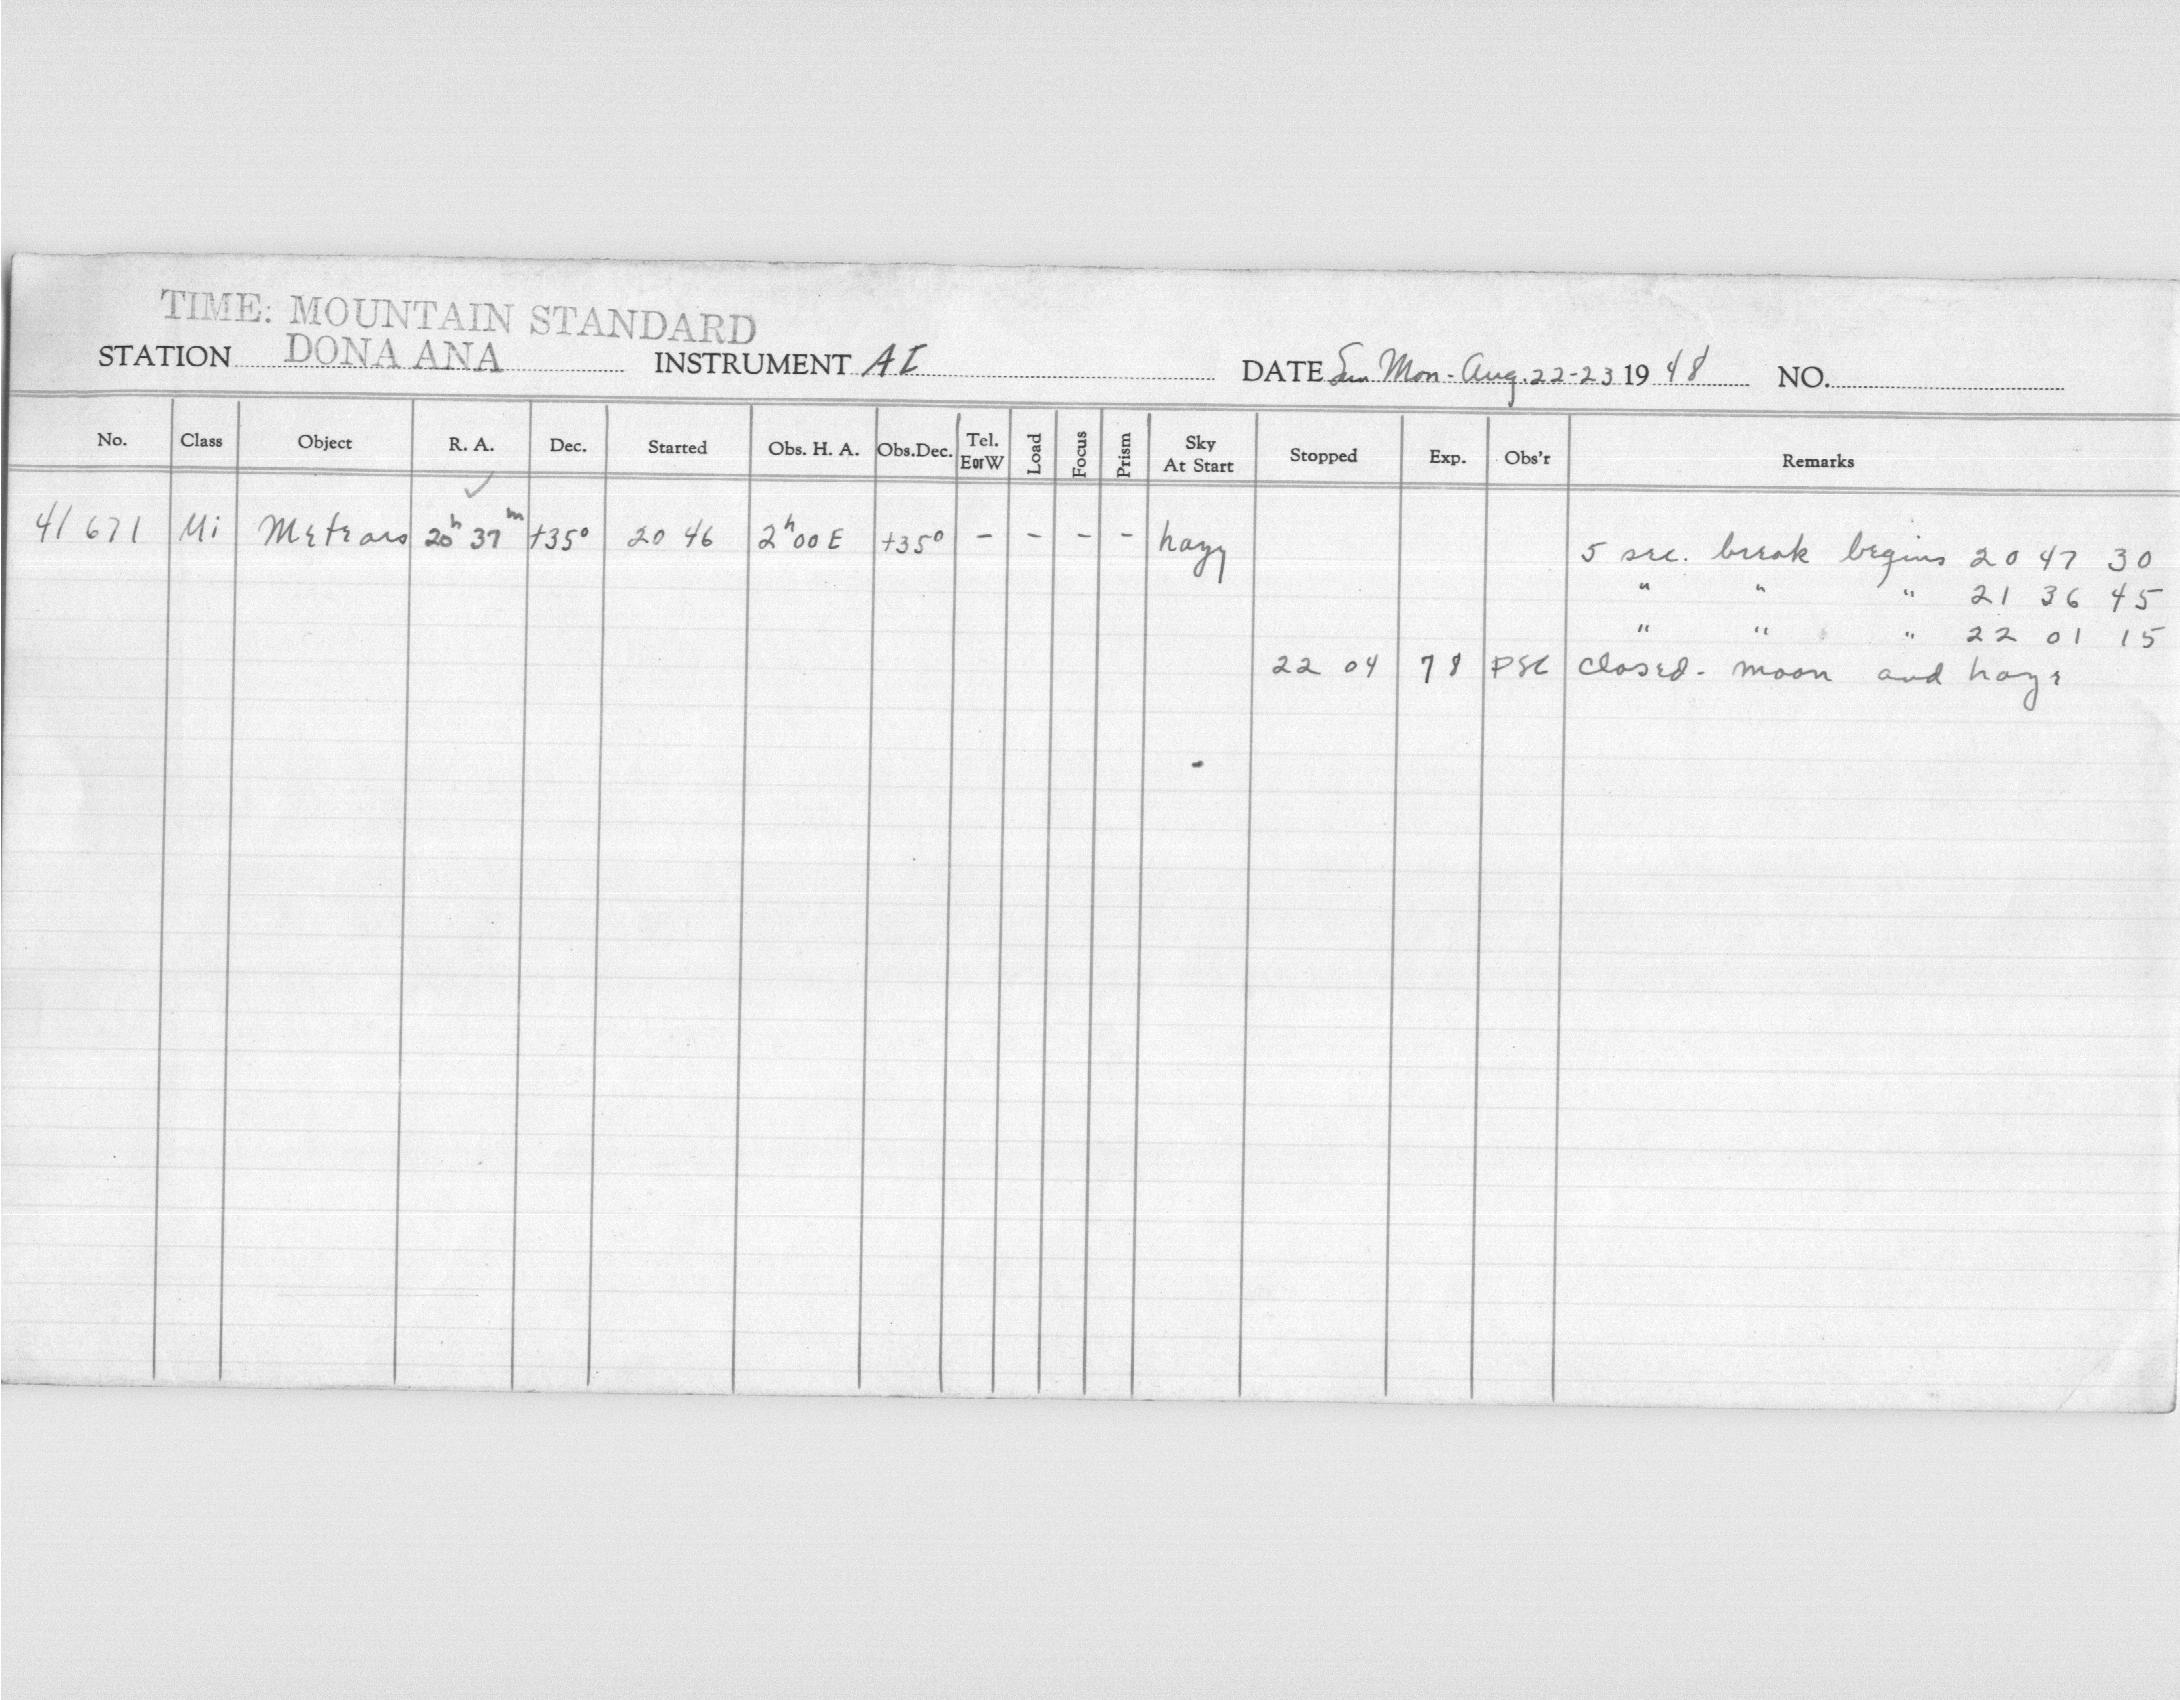 TIME: MOUNTAIN STANDARD
STATION DONA ANA INSTRUMENT AI DATE Sun Mon - Aug. 22-23 1948 NO.
No. Class Object R. A. Dec. Started Obs. H. A. Obs.Dec. Tel. E or W Load Focus Prism Sky At Start Stopped Exp. Obs'r Remarks
✓
41671 Mi Meteors 20h 37m +35° 20 46 2h00 E +35° - - - - hazy 5 sec. break begins 20 47 30
" " " 21 36 45
" " " 22 01 15
22 04 78 PSC closed - moon and haze
-